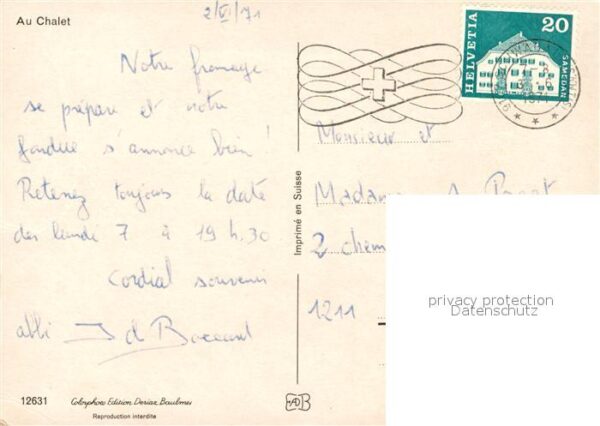 Au Chalet
2/VI/71
Notre fromage
se prépare et notre
fondue s'annonce bien !
Retenez toujours la date
du lundi 7 à 19 h.30
Cordial souvenir
abbé
Imprimé en Suisse
12631
Colorphoto Edition Deriaz Baulmes
Reproduction interdite
HELVETIA
20
SAMEDAN
1971
Monsieur et
Madame A.
2 chem
1211
privacy protection
Datenschutz